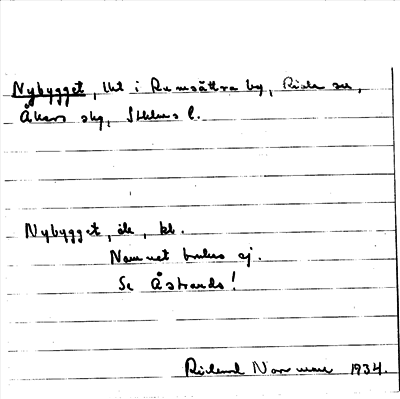 Nybygget, lht i Rumsättra by, Riala sn,
Åkers skg, Sthlms l.
Nybygget, de, kl.
Namnet brukas ej.
Se Åstrands!
Rickard Norman 1934.